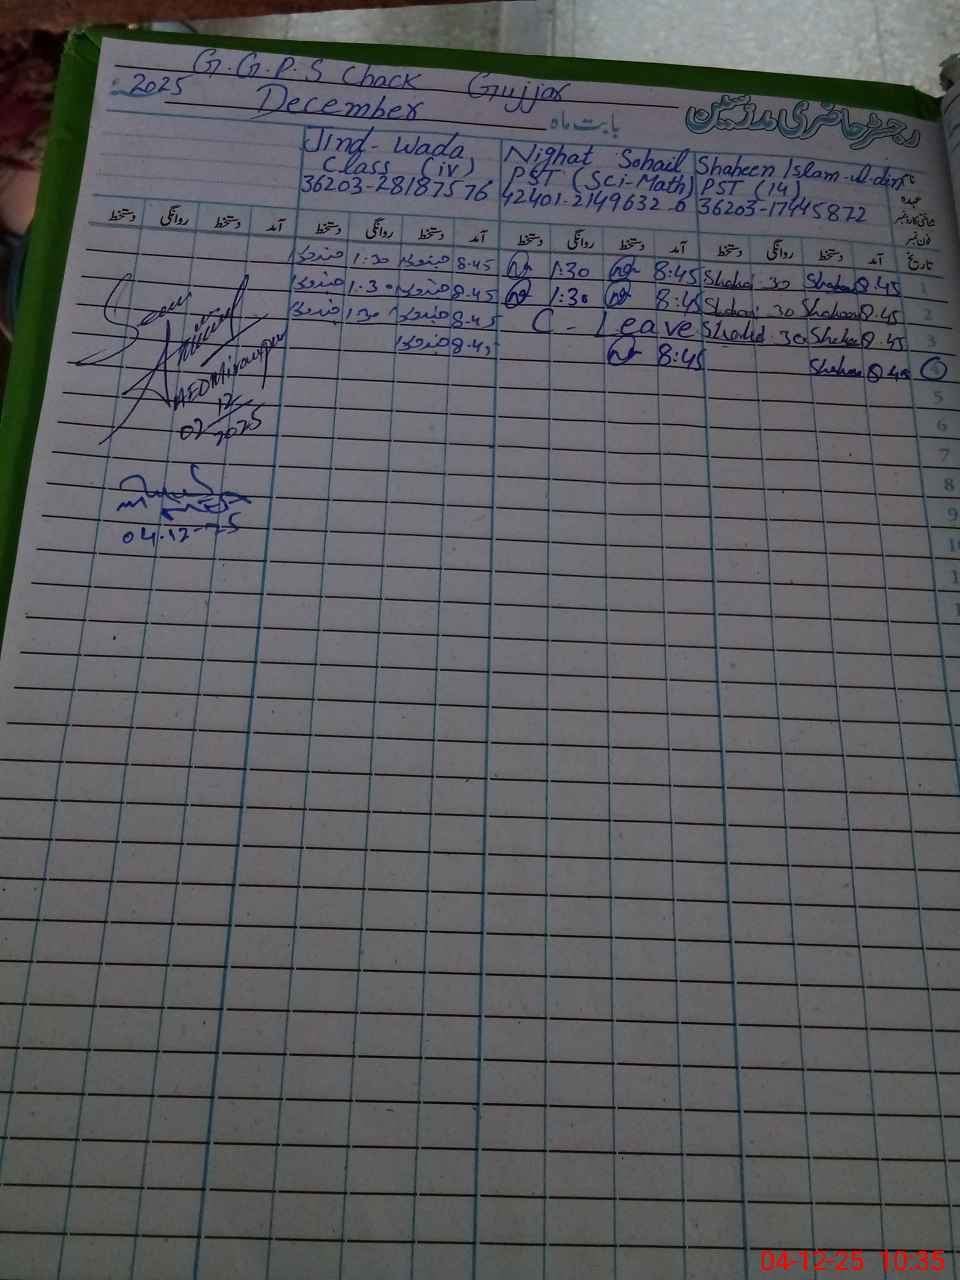 G.G.P.S Chack Gujjar
2025 December بابت ماہ رجسٹر حاضری مدرسین
Shaheen Islam-ul-din
PST (14)
36203-17445872
Nighat Sohail
PST (Sci-Math)
42401-2149632-0
Jind-Wada
Class (iv)
36203-28187576
عہدہ
تاریخ آمد دستخط روانگی دستخط آمد دستخط روانگی دستخط آمد دستخط روانگی دستخط آمد دستخط روانگی دستخط
1 8.45 Shaheen 1:30 8:45 1:30 8.45 1:30
2 8.45 Shaheen 30 8:45 1:30 8.45 1:30
3 8.45 Shaheen 30 C-Leave 8.45 1:30
4 8.45 Shaheen 8:45 8.45
5
6
7
8
9
10
02/12/2025
04.12-25
04-12-25 10:35